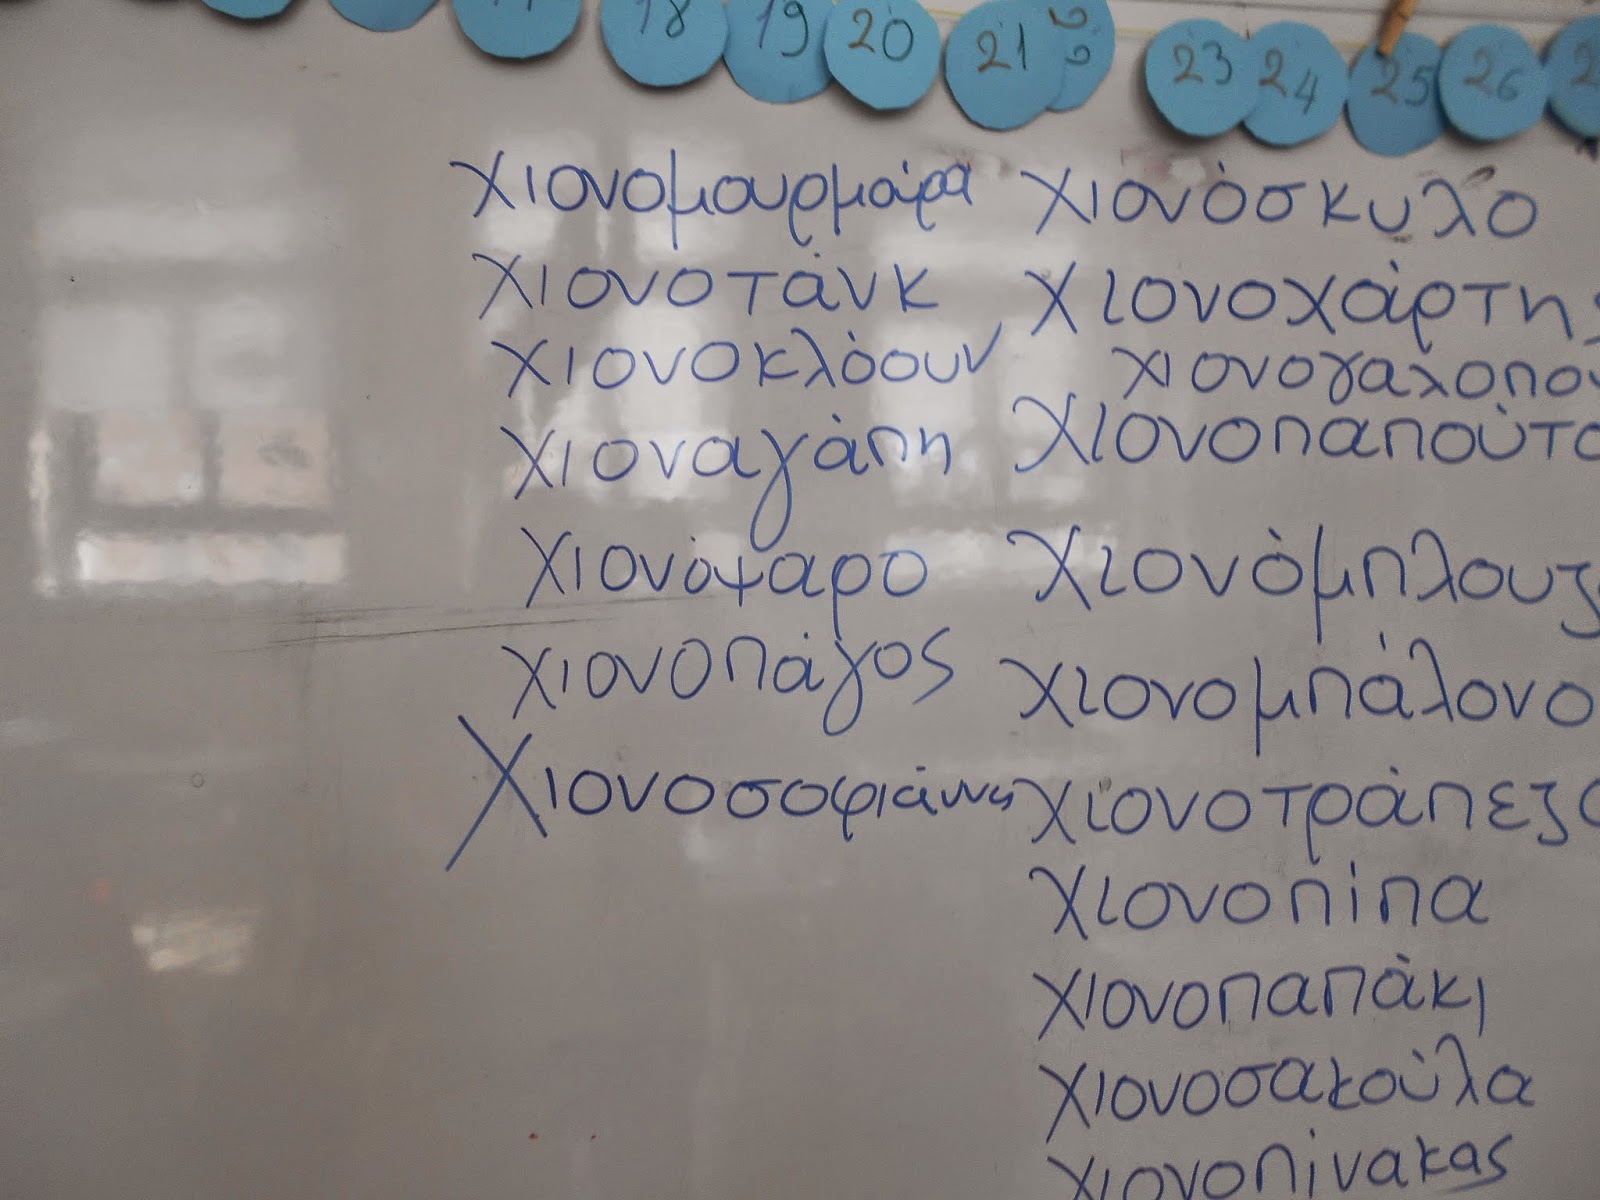 18 19 20 21 23 24 25 26
χιονομουρμούρα
χιονοτάνκ
χιονοκλόουν
χιοναγάπη
χιονόψαρο
χιονοπάγος
Χιονοσοφιάννα
χιονόσκυλο
χιονοχάρτης
χιονογαλοπού
χιονοπαπούτσ
χιονόμπλουζ
χιονομπάλονο
χιονοτράπεζο
χιονοπίπα
χιονοπαπάκι
χιονοσακούλα
χιονοπίνακας